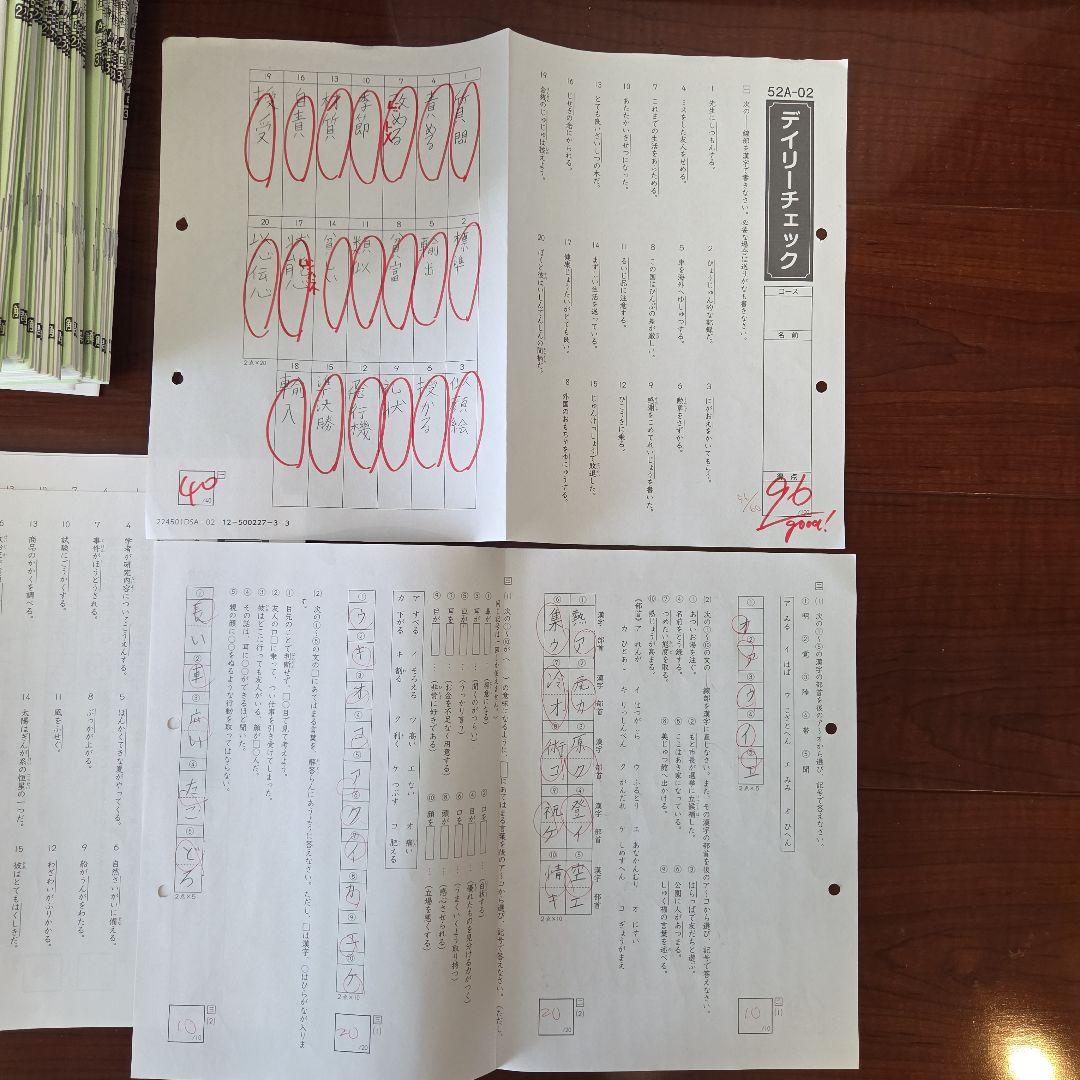 52A-02
デイリーチェック
コース
名前
得点
96
good!
一 次の――線部を漢字で書きなさい。必要な場合は送りがなも書きなさい。
1 先生にしつもんする。
2 ひょうじゅん的な記録だ。
3 にがおえをかいてもらう。
4 ミスをした友人をせめる。
5 車を海外へゆしゅつする。
6 勲章をさずかる。
7 これまでの生活をあらためる。
8 この国はひんぷの差が激しい。
9 感謝をこめてれいじょうを書いた。
10 あたたかいきせつになった。
11 るいじ品に注意する。
12 ひこうきに乗る。
13 とても良いざいしつの木だ。
14 まずしい生活を送っている。
15 じゅんけっしょうで敗退した。
16 じせきの念にかられる。
17 健康じょうたいがとても良い。
8 外国のおもちゃをゆにゅうする。
19 金銭のじゅじゅは控えよう。
20 ぼくと彼はいしんでんしんの間柄だ。
1 質問
2 標準
3 似顔絵
4 責める
5 輸出
6 授かる
7 改める
8 貧富
9 礼状
10 季節
11 類似
12 飛行機
13 材質
14 貧しい
15 準決勝
16 自責
17 状態
18 輸入
19 授受
20 以心伝心
2点×20
40
/40
224501DSA 02 12-500227-3 3
二 (1) 次の①~⑤の漢字の部首を後のア~オから選び、記号で答えなさい。
① 明 ② 竟 ③ 陸 ④ 帯 ⑤ 聞
ア みる イ はば ウ こざとへん エ みみ オ ひへん
① オ ② ア ③ ウ ④ イ ⑤ エ
2点×5
二 (1)
10
/10
(2) 次の①~⑩の文の――線部を漢字に直しなさい。また、その漢字の部首を後のア~コから選び、記号で答えなさい。
① あついお湯を注ぐ。
② もと市長が選挙に立候補した。
③ はらっぱで友だちと遊ぶ。
④ 名前をとう録する。
⑤ ここはあき家になっている。
⑥ 公園に人があつまる。
⑦ つめたい態度を取る。
⑧ 美じゅつ館へ出かける。
⑨ しゅく福の言葉を述べる。
⑩ 感じょうが高まる。
〈部首〉
ア れんが イ はつがしら ウ ふるとり エ あなかんむり オ にすい
カ ひとあし キ りっしんべん ク がんだれ ケ しめすへん コ ぎょうがまえ
漢字 部首
① 熱 ア
② 元 カ
③ 原 ク
④ 登 イ
⑤ 空 エ
⑥ 集 ウ
⑦ 冷 オ
⑧ 術 コ
⑨ 祝 ケ
⑩ 情 キ
2点×10
二 (2)
20
/20
① 鼻が
② 口を
③ 耳が
④ 目が
⑤ 耳を
⑦ 口が
⑧ 頭が
⑨ 目が
⑩ 顔を
(得意になる)
(白状する)
(聞くのがつらい)
(優れたものを見分ける力がつく)
(お金を不足なく用意する)
(うまくいくよう取り持つ)
(うっかり言う)
(感心させられる)
(非常に好きである)
(立場を悪くする)
ア すべる イ そろえる ウ 高い エ ない オ 痛い
カ 下がる キ 割る ク 利く ケ つぶす コ 肥える
2点×10
三 (1)
20
/20
(2) 次の①~⑤の文の□にあてはまる言葉を、解答らんにあうように答えなさい。ただし、□は漢字、○はひらがなが入ります。
① 目先のことで判断せず、□○目で見て考えよう。
② 友人の口□に乗って、つい仕事を引き受けてしまった。
③ 彼はどこに行っても友人がいる。顔が□○んだ。
④ その話は、耳に○○ができるほど聞いた。
⑤ 親の顔に○○をぬるような行動を取ってはならない。
① 長い ② 車 ③ 広い ④ たこ ⑤ どろ
2点×5
三 (2)
10
/10
4 学者が研究内容についてこうえんする。
5 ほんかくてきな夏がやってくる。
6 自然さいがいに備える。
7 事件がほうどうされる。
8 ぶっかが上がる。
9 船がうんがをわたる。
10 試験にごうかくする。
11 風をふせぐ。
12 わざわいがふりかかる。
13 商品のかかくを調べる。
14 太陽はぎんが系の恒星の一つだ。
15 彼はとてもはくしきだ。